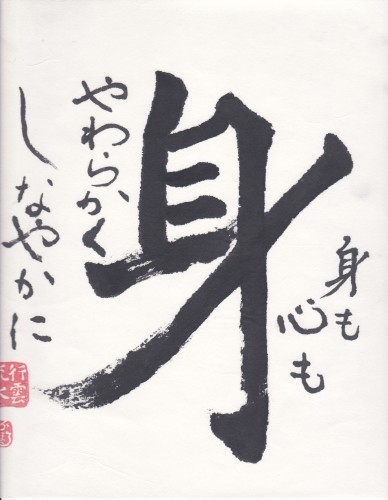 身も
心も
身
やわらかく
しなやかに
行雲
流水